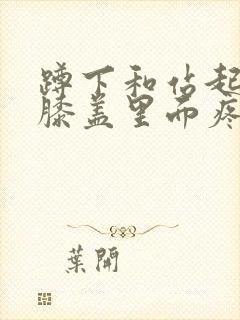 蹲下和站起
膝盖里面疼
葉開